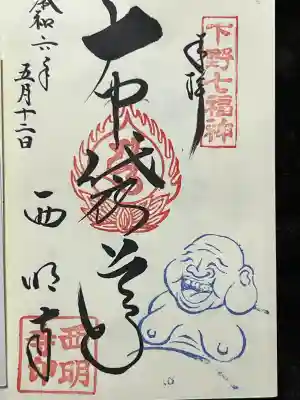 下野七福神
奉拝
布袋尊
西明寺
西明寺印
令和六年
五月十二日